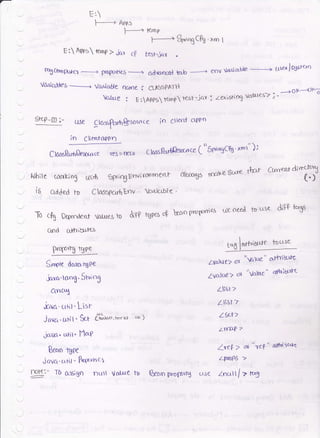 E:\
→ Apps
→ temp
→ SpringCfg.xml
E:\Apps\temp> jar cf test.jar .
mycomputer → properties → advanced tab → env variable → user/system
variables → variable name : CLASSPATH
value : E:\Apps\temp\test.jar; <existing values>; → OK → OK
step-II :- use ClassPathResource in client appn
in client appn
ClassPathResource res=new ClassPathResource("SpringCfg.xml");
While working with Spring Environment always make sure that Current directory (.)
is added to Classpath Env Variable.
To cfg Dependent values to diff types of bean properties we need to use diff tags
and attributes
property type
tag/attribute to use
Simple data type
<value> or "value" attribute
java.lang.String
<value> or "value" attribute
array
<list>
java.util.List
<list>
java.util.Set
<set>
java.util.Map
<map>
Bean type
<ref> or "ref" attribute
java.util.Properties
<props>
note:- To assign null value to Bean property use <null/> tag